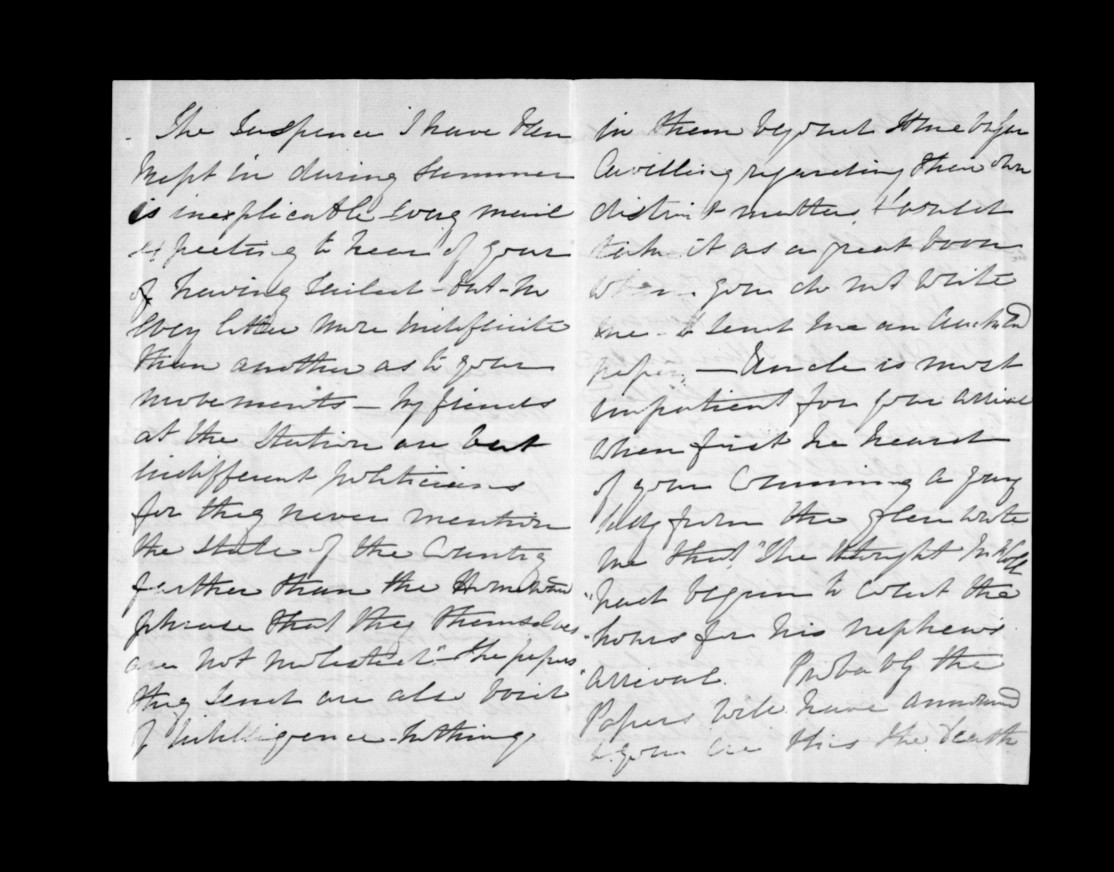 The Suspence I have been
kept in during summer
is inexplicable every mail
expecting to hear of your
of having sailed - but - in
every letter more indefinite
than another as to your
movements — My friends
at the Station are but
indifferent politicians
for they never mention
the state of the Country
further than the
phrase that they themselves
are not molested" - The papers
they send are also void
of intelligence nothing
in them beyond some
Cavilling regarding their own
district matters, I would
take it as a great boon
when you do not write
me - to send me an Auckld
paper. — Uncle is most
impatient for your arrival
when first he heard
of your Comming a young
lady from the glen wrote
me that "The
"had begun to count the
"hours for his nephews
arrival. Probably the
Papers will have announced
to you ere this the death